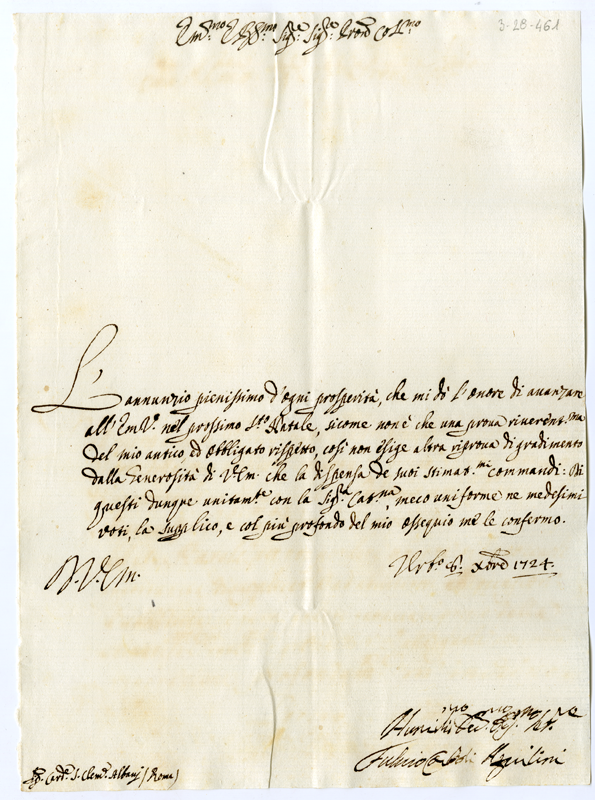 3-28-461
Em.mo e R.mo Sig.re Sig.re Pron Col.mo
L'annunzio pienissimo d'ogni prosperità, che mi dò l'onore di avanzare
all' Em.V.a nel prossimo S.to Natale, sicome non è che una prova riverent.ma
del mio antico ed obbligato rispetto, così non esige altra riprova di gradimento
dalla Generosità di V.Em. che la dispensa de suoi stimat.mi commandi: Di
questi dunque unitam.te con la Sig.ra Cat.na, meco uniforme ne medesimi
voti, la supplico, e col più profondo del mio ossequio me le confermo.
D. V. Em.
Urb.o 8. Xbre 1724.
Humiliss.mo Dev.mo Obl.mo Ser.re
Fulvio
Sig. Card. S. Clem.te Albani (Roma)